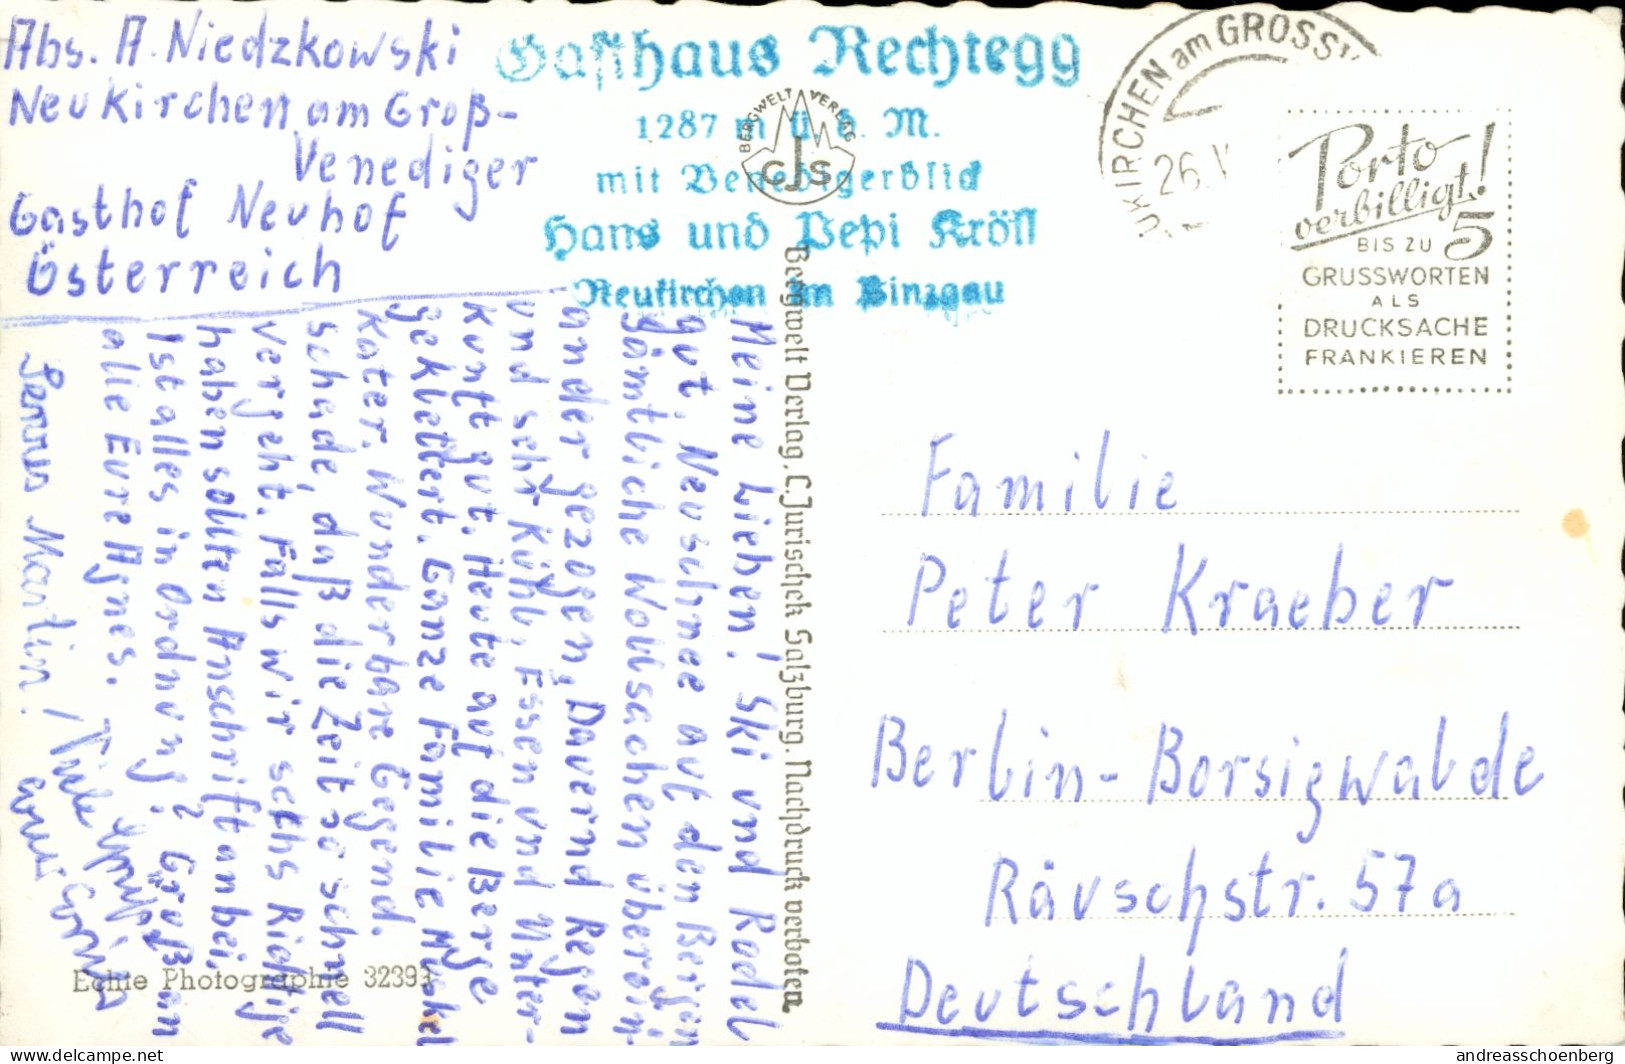 Abs. A. Niedzkowski
Neukirchen am Groß-
Venediger
Gasthof Neuhof
Österreich
Gasthaus Rechtegg
1287 m ü. d. M.
mit Venedigerblick
Hans und Pepi Kröll
Neukirchen im Pinzgau
BERGWELT VERLAG
CJS
UKIRCHEN am GROSSV
26. V
Porto
verbilligt!
BIS ZU 5
GRUSSWORTEN
ALS
DRUCKSACHE
FRANKIEREN
Meine Lieben! Ski und Rodel
gut. Neuschnee auf den Bergen
sämtliche Wollsachen überein-
ander gezogen, Dauernd Regen
und sehr kühl, Essen und Unter-
kunft gut. Heute auf die Berge
geklettert. Ganze Familie Muskel
Kater. Wunderbare Gegend.
schade, daß die Zeit so schnell
vergeht. Falls wir sechs Richtige
haben sollten Anschrift anbei,
Ist alles in Ordnung? Gruß an
alle Eure Agnes.
Servus Martin!
Viele Grüße
Bergwelt Verlag, C. Jurischek Salzburg. Nachdruck verboten
Echte Photographie 32393
Familie
Peter Kraeber
Berlin-Borsigwalde
Räuschstr. 57a
Deutschland
the-seller-from-de
andreasschoenberg